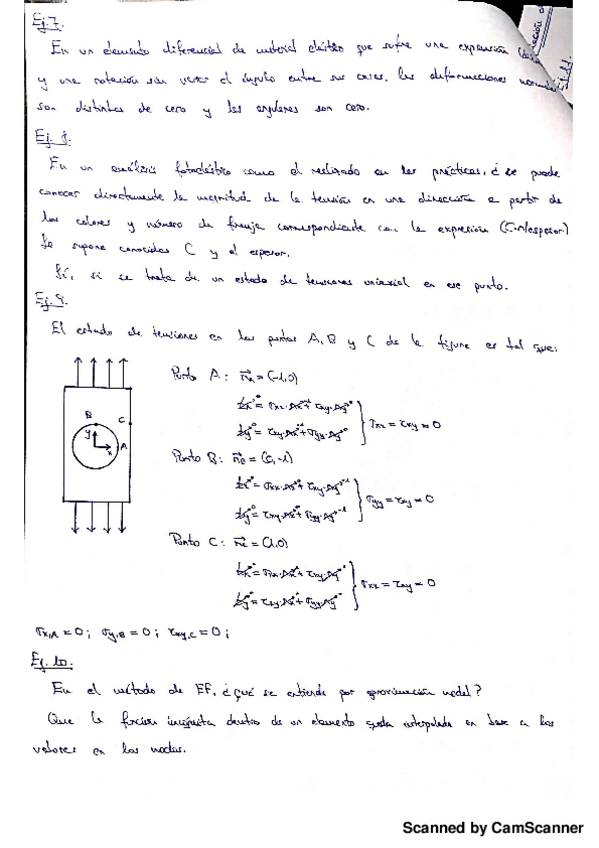 Ej.7.
En un elemento diferencial de material elástico que sufre una expansión
y una rotación sin variar el ángulo entre sus caras, las deformaciones normales
son distintas de cero y las angulares son cero.
Ej. 8.
En un análisis fotoelástico como el realizado en las prácticas, ¿se puede
conocer directamente la magnitud de la tensión en una dirección a partir de
los colores y número de franja correspondiente con la expresión (C·N/espesor)
Se supone conocidas C y el espesor.
Sí, si se trata de un estado de tensiones uniaxial en ese punto.
Ej. 9.
El estado de tensiones en los puntos A, B y C de la figura es tal que:
Punto A: n_A = (-1,0)
σxx = τxy = 0
B
C
y
x
A
Punto B: = (0,-1)
σyy = τxy = 0
Punto C: n_C = (1,0)
σxx = τxy = 0
σx,A = 0; σy,B = 0; τxy,C = 0;
Ej. 10.
En el método de EF, ¿qué se entiende por aproximación nodal?
Que la función incógnita dentro de un elemento queda interpolada en base a los
valores en los nodos.
Scanned by CamScanner